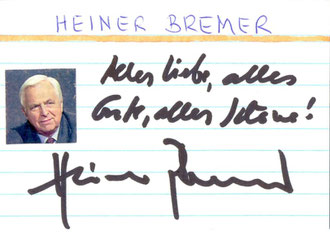 HEINER BREMER
Alles Liebe, alles
Gute, alles Schöne!
Heiner Bremer